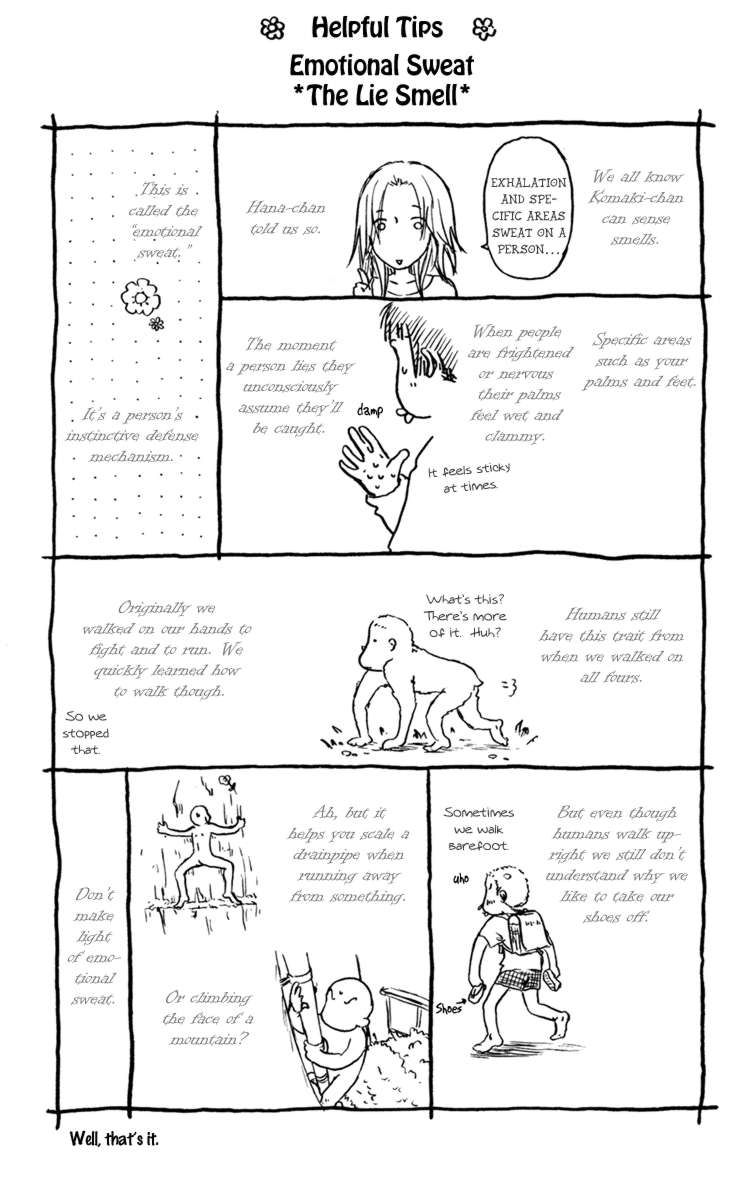 Helpful Tips
Emotional Sweat
*The Lie Smell*
We all know
Komaki-chan
can sense
smells.
EXHALATION
AND SPE-
CIFIC AREAS
SWEAT ON A
PERSON....
Hana-chan
told us so.
Specific areas
such as your
palms and feet.
When people
are frightened
or nervous
their palms
feel wet and
clammy.
It feels sticky
at times.
damp
The moment
a person lies they
unconsciously
assume they'll
be caught.
This is
called the
"emotional
sweat."
It's a person's
instinctive defense
mechanism.
Humans still
have this trait from
when we walked on
all fours.
What's this?
There's more
of it. Huh?
Originally we
walked on our hands to
fight and to run. We
quickly learned how
to walk though.
So we
stopped
that.
But even though
humans walk up-
right we still don't
understand why we
like to take our
shoes off.
Sometimes
we walk
barefoot.
uho
Shoes
Ah, but it
helps you scale a
drainpipe when
running away
from something.
Or climbing
the face of a
mountain?
Don't
make
light
of emo-
tional
sweat.
Well, that's it.